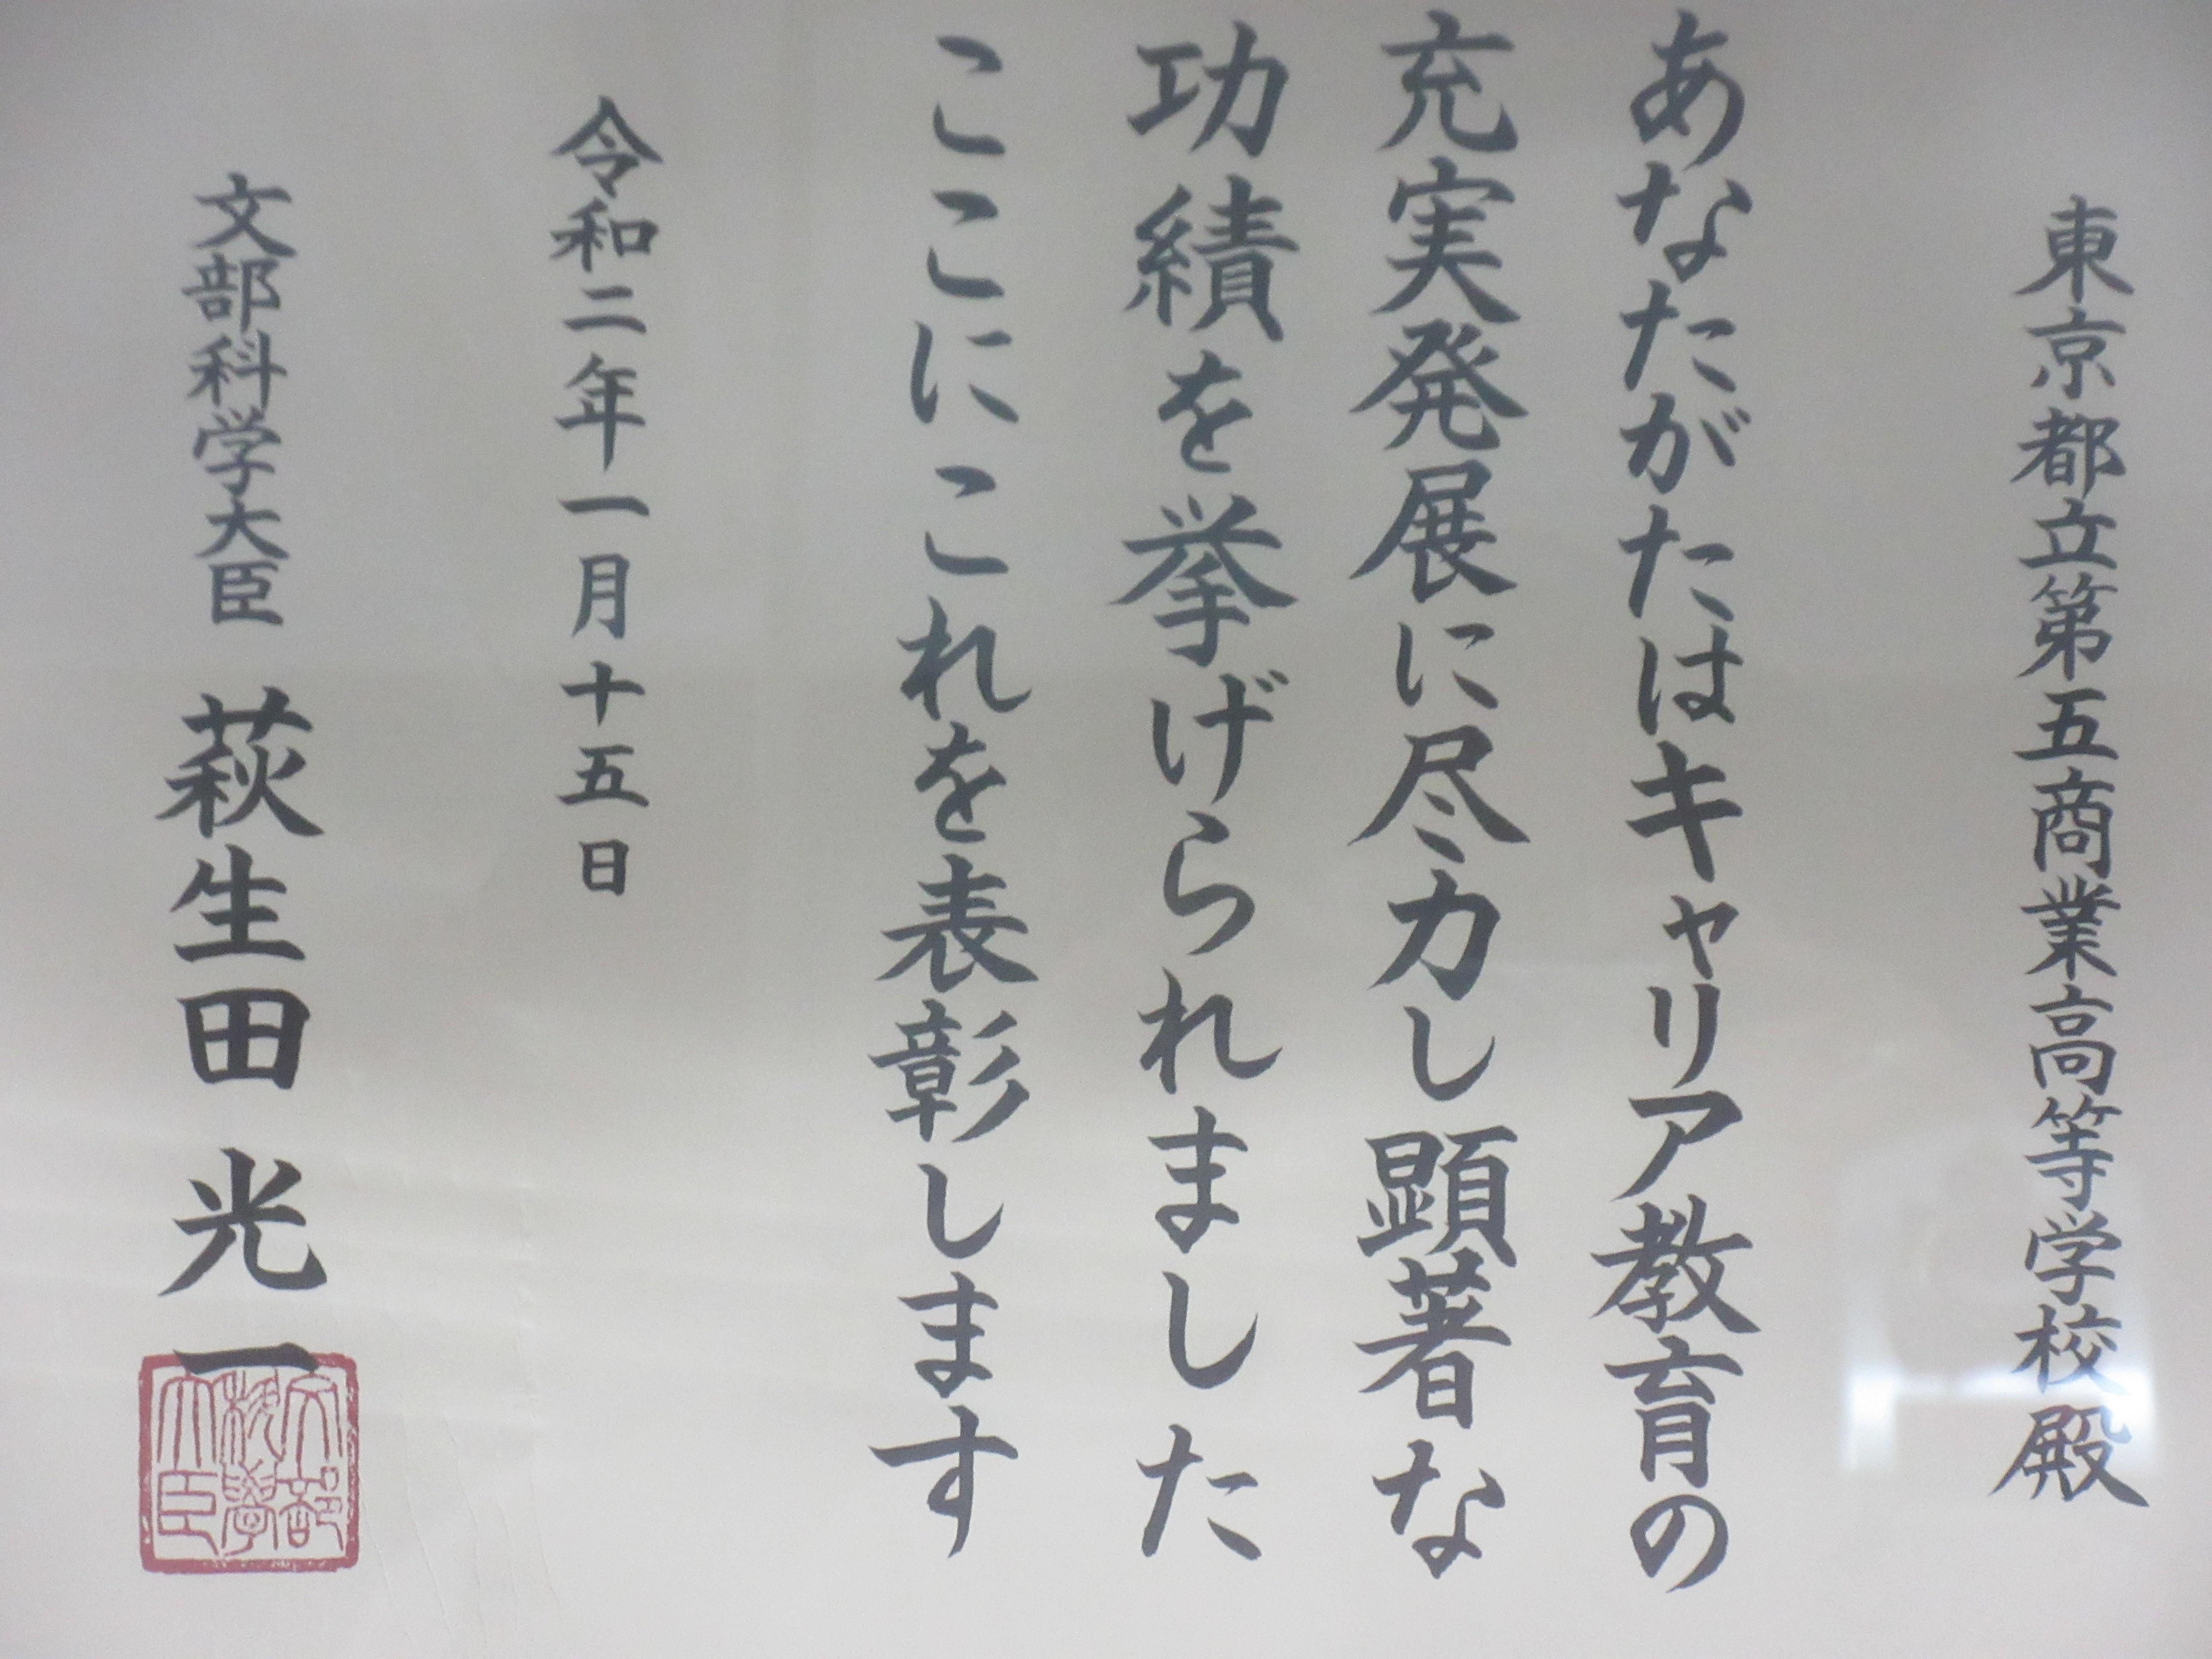 東京都立第五商業高等学校殿
あなたがたはキャリア教育の
充実発展に尽力し顕著な
功績を挙げられました
ここにこれを表彰します
令和二年一月十五日
文部科学大臣 萩生田 光一
文部
科學
大臣